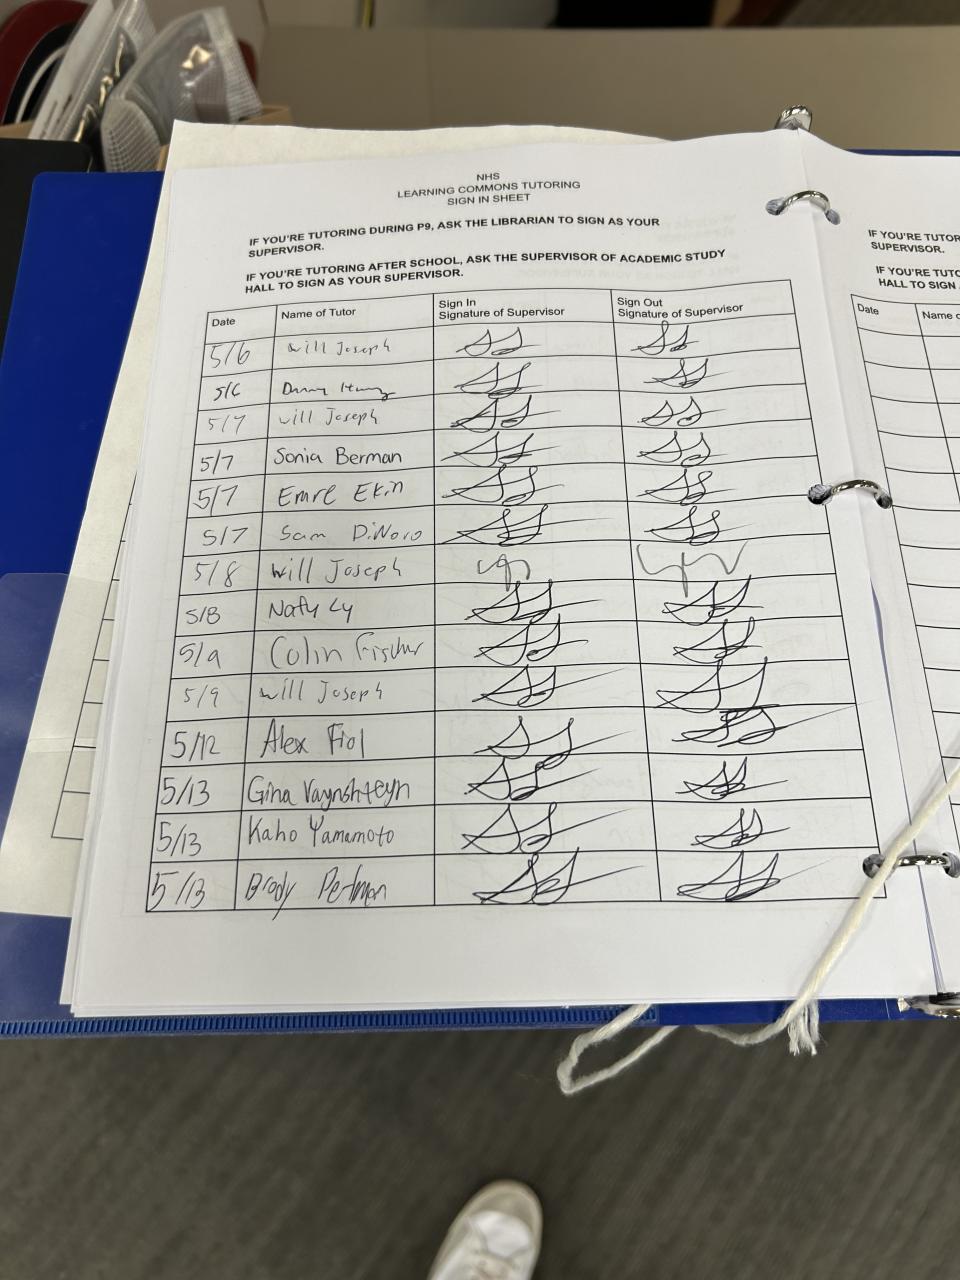 NHS
LEARNING COMMONS TUTORING
SIGN IN SHEET
IF YOU'RE TUTORING DURING P9, ASK THE LIBRARIAN TO SIGN AS YOUR
SUPERVISOR.
IF YOU'RE TUTORING AFTER SCHOOL, ASK THE SUPERVISOR OF ACADEMIC STUDY
HALL TO SIGN AS YOUR SUPERVISOR.
Date Name of Tutor Sign In Signature of Supervisor Sign Out Signature of Supervisor
5/6 Will Joseph
5/6 Danny
5/7 Will Joseph
5/7 Sonia Berman
5/7 Emre Ekin
5/7 Sam DiNoro
5/8 Will Joseph
5/8 Naty Ly
5/9 Colin Fischer
5/9 Will Joseph
5/12 Alex Fiol
5/13 Gina Vaynshteyn
5/13 Kaho Yamamoto
5/13 Brody Perlman
IF YOU'RE TUTOR
SUPERVISOR.
IF YOU'RE TUTO
HALL TO SIGN
Date Name o